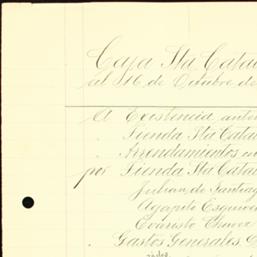 Caja Sta Cata
al 16 de Octubre de
A Existencia ante
" Tienda Sta Cata
" Arrendamientos en
por Tienda Sta Cata
Julian de Santiag
Agapito Esquive
Evaristo Chavez
" Gastos Generales